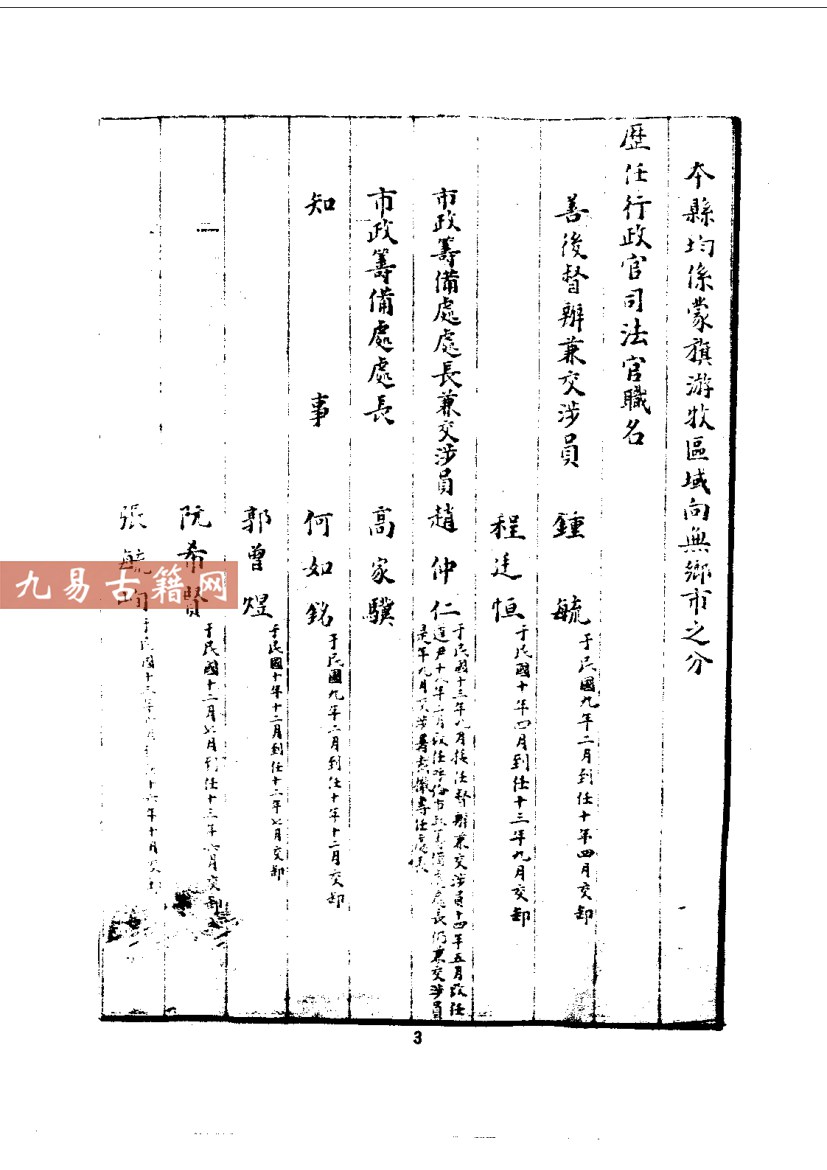 本縣均係蒙旗游牧區域向無鄉市之分
歷任行政官司法官職名
善後督辦兼交涉員 鍾毓 于民國九年二月到任十年四月交卸
程廷恒 于民國十年四月到任十三年九月交卸
市政籌備處處長兼交涉員 趙仲仁 于民國十三年九月接任督辦兼交涉員十四年五月改任
道尹十八年二月改任 市政籌備處處長仍兼交涉員
是年九月交涉員 專任處長
市政籌備處處長 高家驥
知事 何如銘 于民國九年二月到任十年十二月交卸
郭曾煜 于民國十年十二月到任十二年七月交卸
阮希賢 于民國十二月七月到任十三年八月交卸
張毓 于民國十三年 十六年十月交卸
九易古籍网
3